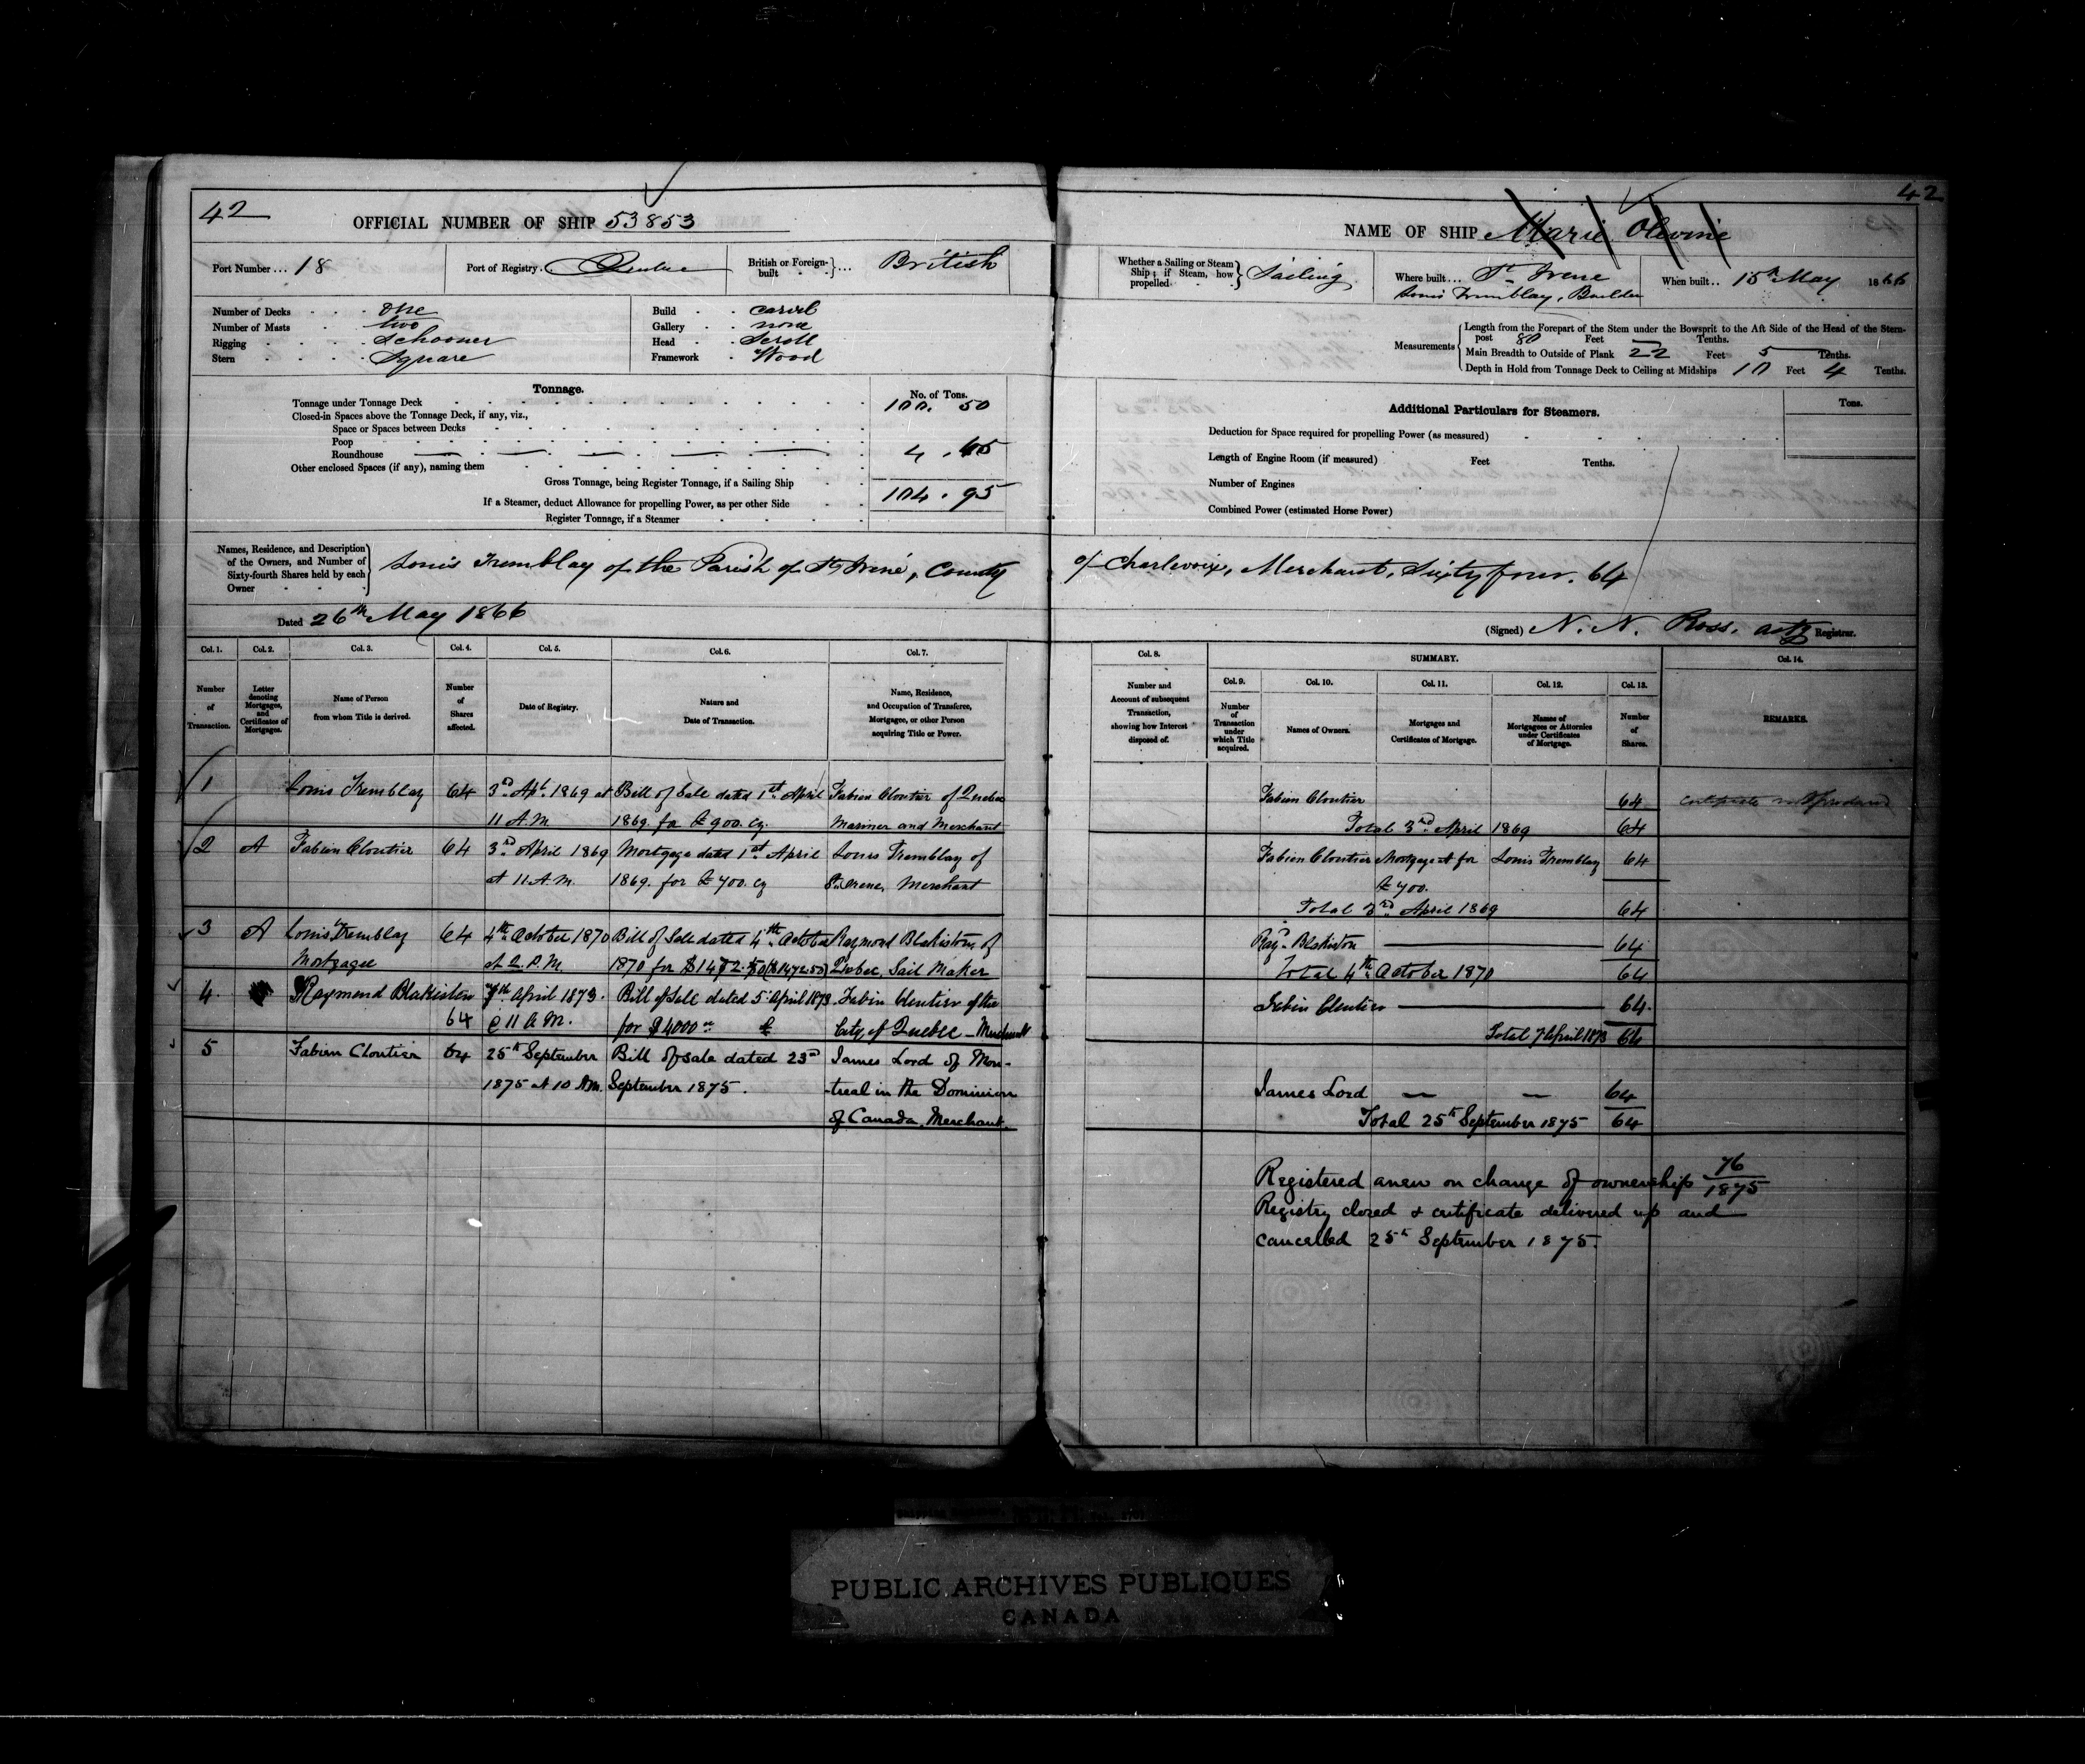 42
OFFICIAL NUMBER OF SHIP 53853
Port Number... 18 Port of Registry. Quebec British or Foreign-built ... British
Number of Decks one
Number of Masts two
Rigging Schooner
Stern Square
Build carvel
Gallery none
Head Scroll
Framework Wood
Tonnage. No. of Tons.
Tonnage under Tonnage Deck 100. 50
Closed-in Spaces above the Tonnage Deck, if any, viz.,
Space or Spaces between Decks
Poop
Roundhouse 4 . 45
Other enclosed Spaces (if any), naming them
Gross Tonnage, being Register Tonnage, if a Sailing Ship 104 . 95
If a Steamer, deduct Allowance for propelling Power, as per other Side
Register Tonnage, if a Steamer
Names, Residence, and Description
of the Owners, and Number of
Sixty-fourth Shares held by each
Owner
Louis Tremblay of the Parish of St Irené, County
Dated 26th May 1866
Col. 1. Col. 2. Col. 3. Col. 4. Col. 5. Col. 6. Col. 7.
Number of Transaction.
Letter denoting Mortgages, and Certificates of Mortgages.
Name of Person from whom Title is derived.
Number of Shares affected.
Date of Registry.
Nature and Date of Transaction.
Name, Residence, and Occupation of Transferee, Mortgagee, or other Person acquiring Title or Power.
1 Louis Tremblay 64 3rd Apl. 1869 at Bill of Sale dated 1st April Fabien Cloutier of Quebec
11 A.M. 1869. for £900. cy. Mariner and Merchant
2 A Fabien Cloutier 64 3rd April 1869 Mortgage dated 1st April Louis Tremblay of
at 11 A.M. 1869. for £700. cy St. Irene, Merchant
3 A Louis Tremblay 64 4th October 1870 Bill of Sale dated 4th October Raymond Blakiston of
Mortgagee at 2. P.M. 1870 for $1472.50 ($1472.50) Quebec, Sail Maker
4. Raymond Blakiston 7th April 1873. Bill of Sale dated 5 April 1873 Fabin Cloutier of the
64 @ 11 A.M. for $4000 City of Quebec - Merchant
5 Fabien Cloutier 64 25th September Bill of sale dated 23rd James Lord of Mon-
1875 at 10 AM. September 1875. -treal in the Dominion
of Canada, Merchant.
42
NAME OF SHIP Marie Olevine
Whether a Sailing or Steam
Ship; if Steam, how
propelled
Sailing
Where built... St Irene
Louis Tremblay, Builder
When built.. 15th May 1866
Measurements
Length from the Forepart of the Stem under the Bowsprit to the Aft Side of the Head of the Stern-
post 80 Feet — Tenths.
Main Breadth to Outside of Plank 22 Feet 5 Tenths.
Depth in Hold from Tonnage Deck to Ceiling at Midships 10 Feet 4 Tenths.
Additional Particulars for Steamers. Tons.
Deduction for Space required for propelling Power (as measured)
Length of Engine Room (if measured) Feet Tenths.
Number of Engines
Combined Power (estimated Horse Power)
of Charlevoix, Merchant, Sixty four. 64
(Signed) N. N. Ross. actg Registrar.
Col. 8. SUMMARY. Col. 14.
Col. 9. Col. 10. Col. 11. Col. 12. Col. 13.
Number and Account of subsequent Transaction, showing how Interest disposed of.
Number of Transaction under which Title acquired.
Names of Owners.
Mortgages and Certificates of Mortgage.
Names of Mortgagees or Attornies under Certificates of Mortgage.
Number of Shares.
REMARKS.
Fabien Cloutier 64 certificate not produced
Total 3rd April 1869 64
Fabien Cloutier Mortgage A for Louis Tremblay 64
£700.
Total 3rd April 1869 64
Rayd. Blakiston 64
Total 4th October 1870 64
Fabin Cloutier 64.
Total 7 April 1873 64
James Lord 64
Total 25th September 1875 64
Registered anew on change of ownership 76/1875
Registry closed & certificate delivered up and
cancelled 25th September 1875.
PUBLIC ARCHIVES PUBLIQUES
CANADA